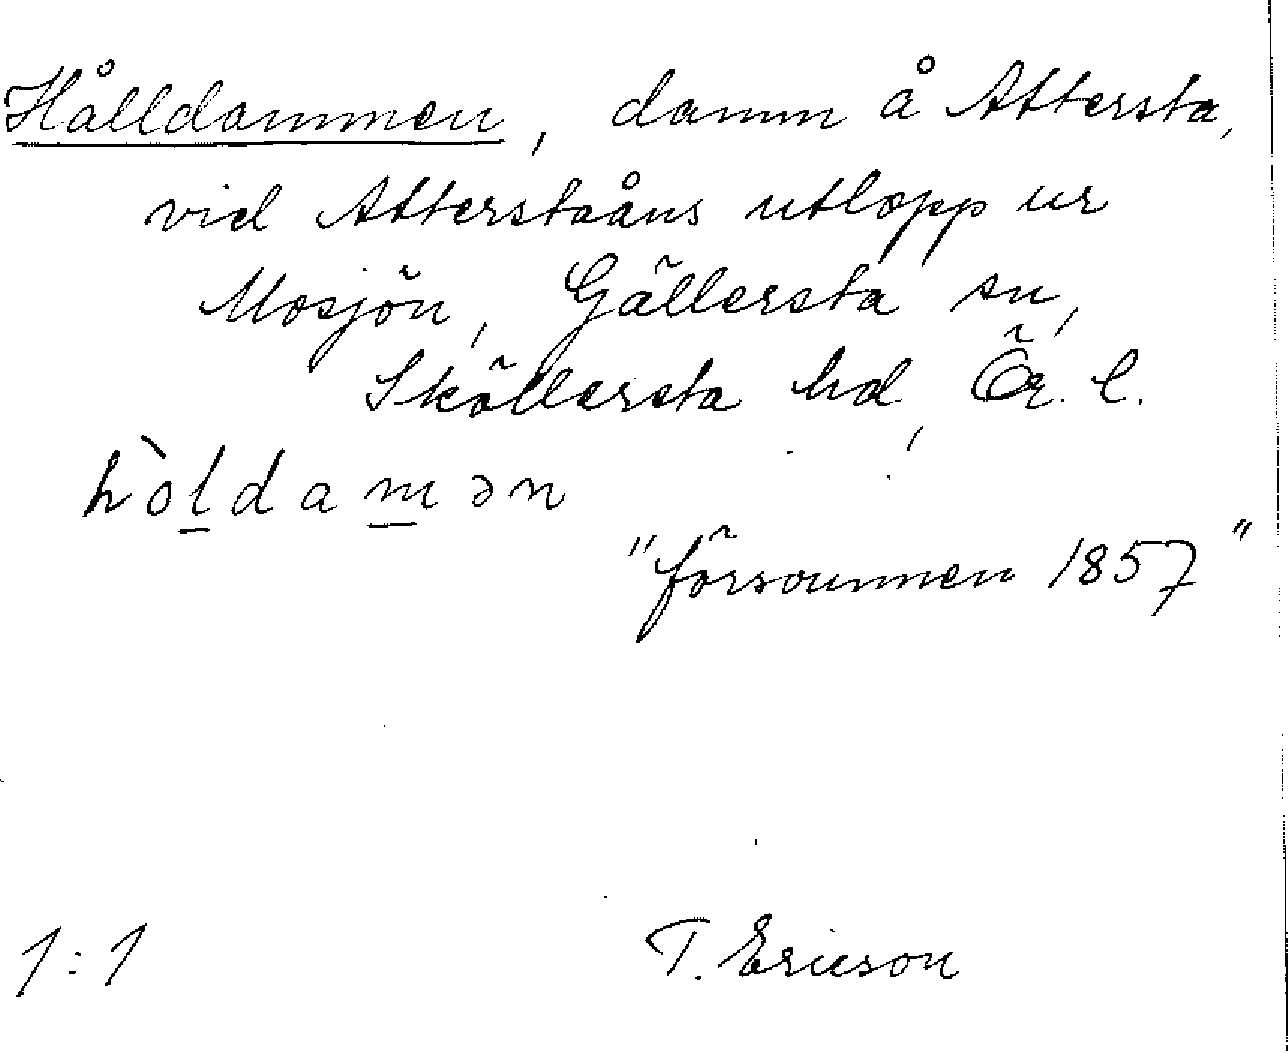 Hålldammen, damm å Attersta,
vid Atterstaåns utlopp ur
Mosjön, Gällersta sn,
Sköllersta hd, Ör. l.
hòl̲dam̲ən
"försvunnen 1857"
1:1 T. Ericson